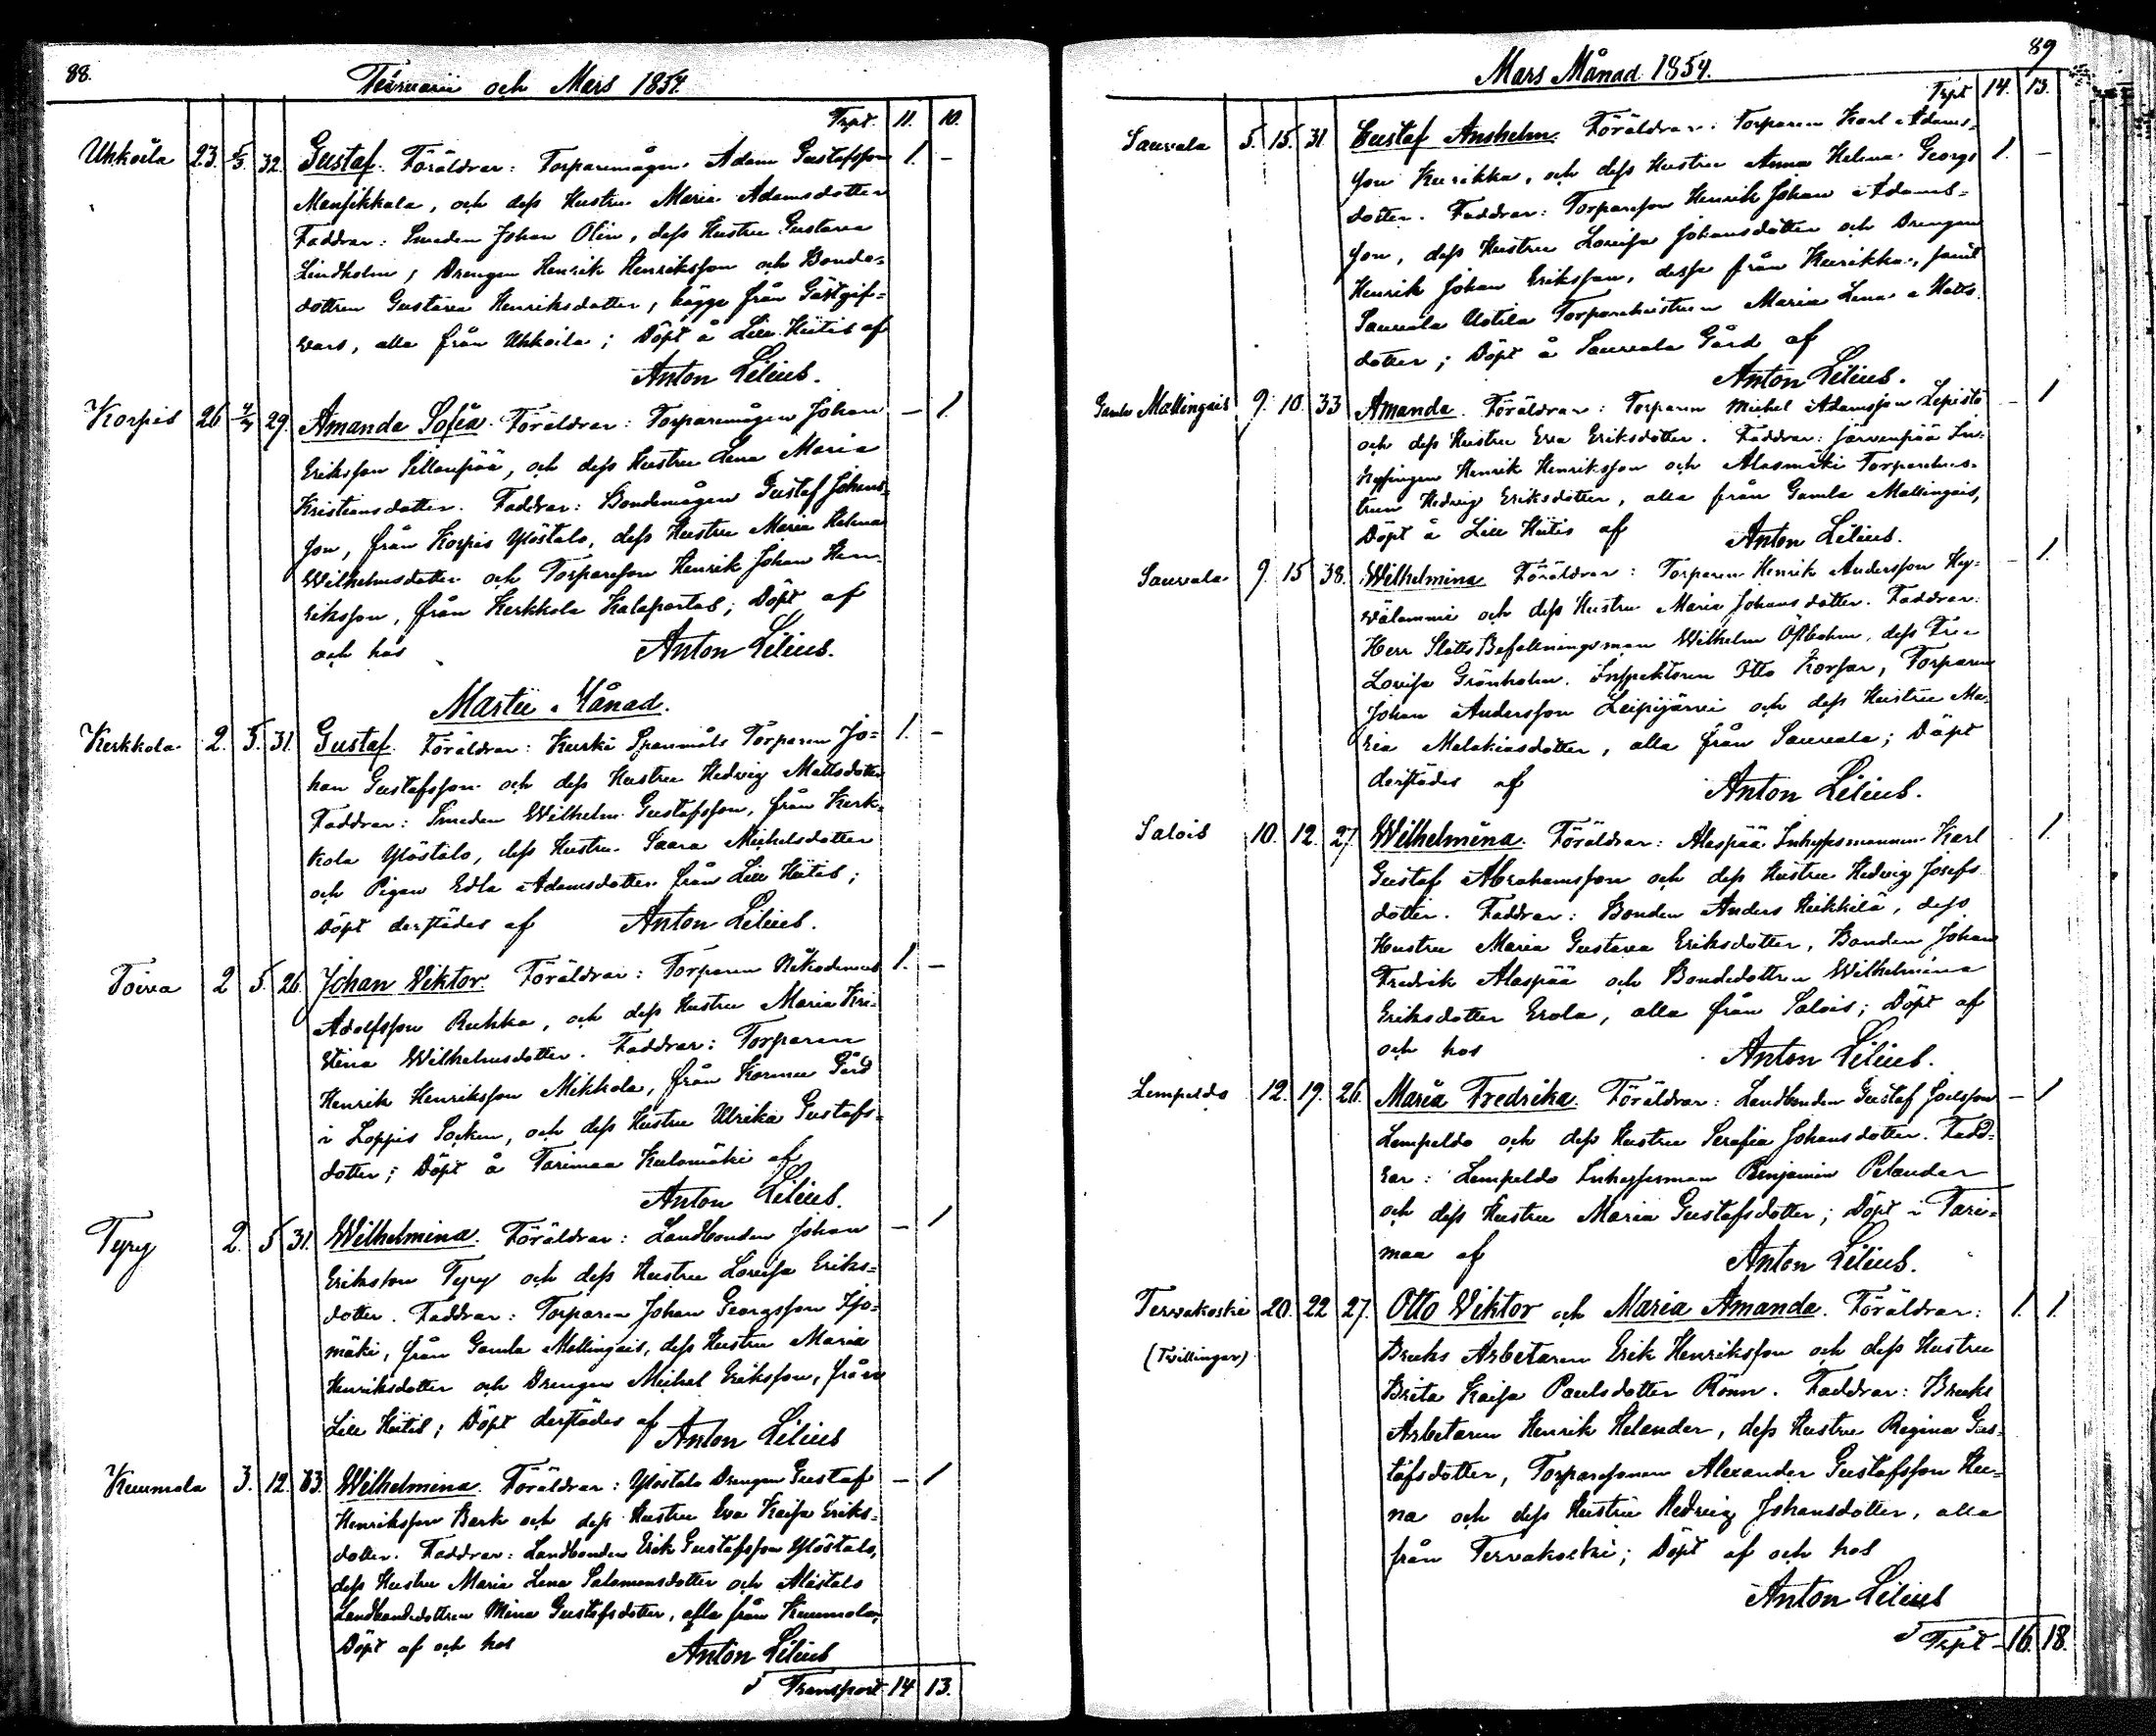 88.
Februarii och Mars 1854.
Trpt. 11. 10.
Uhkoila 23. 5/3. 32. Gustaf. Föräldrar: Torparemågen Adam Gustafsson 1. –
Mansikkala, och dess Hustru Maria Adamsdotter
Faddrar: Smeden Johan Olin, dess Hustru Gustava
Lindholm, Drengen Henrik Henriksson och Bonde-
dottren Gustava Henriksdotter, bägge från Gästgif-
vars, alla från Uhkoila; Döpt å Lill Hiitis af
Anton Lilius.
Korpis 26 4/3 29. Amanda Sofia. Föräldrar: Torparemågen Johan – 1.
Eriksson Sillanpää, och dess Hustru Lena Maria
Kristiansdotter. Faddrar: Bondemågen Gustaf Johans-
son, från Korpis Ylöstalo, dess Hustru Maria Helena
Wilhelmsdotter och Torparesson Henrik Johan Hen-
riksson, från Kerkkola Kalaportas; Döpt af
och hos Anton Lilius.
Martii Månad.
Kerkkola 2. 5. 31. Gustaf. Föräldrar: Kurki Spanmåls Torparen Jo- 1. –
han Gustafsson och dess Hustru Hedvig Mattsdotter
Faddrar: Smeden Wilhelm Gustafsson, från Kerk-
kola Ylöstalo, dess Hustru Saara Michelsdotter
och Pigan Edla Adamsdotter från Lill Hiitis;
Döpt derstädes af Anton Lilius.
Toivea 2 5. 26. Johan Viktor. Föräldrar: Torparen Nikodemus 1. –
Adolfsson Ruhka, och dess Hustru Maria Kri-
stina Wilhelmsdotter. Faddrar: Torparen
Henrik Henriksson Mikkola, från Kormu Gård
i Loppis Socken, och dess Hustru Ulrika Gustafs-
dotter; Döpt å Tarimaa Kulomäki af
Anton Lilius.
Tyry 2. 5 31. Wilhelmina. Föräldrar: Landbonden Johan – 1
Eriksson Tyry och dess Hustru Lovisa Eriks-
dotter. Faddrar: Torparen Johan Georgsson Iso-
mäki, från Gamla Mallingais, dess Hustru Maria
Henriksdotter och Drengen Michel Eriksson, från
Lill Hiitis; Döpt derstädes af Anton Lilius
Kummola 3. 12. 33. Wilhelmina. Föräldrar: Ylöstalo Drengen Gustaf – 1
Henriksson Bark och dess Hustru Eva Kaisa Eriks-
dotter. Faddrar: Landbonden Erik Gustafsson Ylöstalo,
dess Hustru Maria Lena Salomonsdotter och Alastalo
Landbondedottren Mina Gustafsdotter, alla från Kummola,
Döpt af och hos Anton Lilius
Transport 14 13.
89
Mars Månad 1854.
Trpt 14. 13.
Sauvala 5. 15. 31. Gustaf Anshelm. Föräldrar: Torparen Karl Adams-
son Kurikka, och dess Hustru Anna Helena Georgs 1. –
dotter. Faddrar: Torparesson Henrik Johan Adams-
son, dess Hustru Lovisa Johansdotter och Drengen
Henrik Johan Eriksson, dessa från Kurikka, samt
Sauvala Uotila Torparehustrun Maria Lena Matts
dotter; Döpt å Sauvala Gård af
Anton Lilius.
Gamla Mallingais 9. 10. 33 Amanda. Föräldrar: Torparen Michel Adamsson Lepistö – 1
och dess Hustru Eva Eriksdotter. Faddrar: Järvenpää In-
hysingen Henrik Henriksson och Alasmäki Torparehus-
trun Hedvig Eriksdotter, alla från Gamla Mallingais,
Döpt å Lill Hiitis af Anton Lilius.
Sauvala 9. 15 38. Wilhelmina. Föräldrar: Torparen Henrik Andersson Hy- – 1.
välammi och dess Hustru Maria Johansdotter. Faddrar:
Herr Slotts Befallningsman Wilhelm Öfbohm, dess Fru
Lovisa Grönholm. Inspektoren Otto Korsar, Torparen
Johan Andersson Leipijärvi och dess Hustru Ma-
ria Malakiasdotter, alla från Sauvala; Döpt
derstädes af Anton Lilius.
Salois 10. 12. 27. Wilhelmina. Föräldrar: Alaspää Inhyssmannen Karl – 1.
Gustaf Abrahamsson och dess Hustru Hedvig Josefs
dotter. Faddrar: Bonden Anders Heikkilä, dess
Hustru Maria Gustava Eriksdotter, Bonden Johan
Fredrik Alaspää och Bondedottren Wilhelmina
Eriksdotter Erola, alla från Salois; Döpt af
och hos Anton Lilius.
Lempeldo 12. 19. 26. Maria Fredrika. Föräldrar: Landbonden Gustaf Joelsson – 1
Lempeldo och dess Hustru Serafia Johansdotter. Fadd-
rar: Lempeldo Inhyssman Benjamin Pelander
och dess Hustru Maria Gustafsdotter; Döpt i Tari-
maa af Anton Lilius.
Tervakoski 20. 22 27. Otto Viktor och Maria Amanda. Föräldrar: 1. 1.
(Tvillingar) Bruks Arbetaren Erik Henriksson och dess Hustru
Brita Kaisa Paulsdotter Rönn. Faddrar: Bruks
Arbetaren Henrik Helander, dess Hustru Regina Gus-
tafsdotter, Torparesonen Alexander Gustafsson Hu-
na och dess Hustru Hedvig Johansdotter, alla
från Tervakoski; Döpt af och hos
Anton Lilius
Trpt 16. 18.